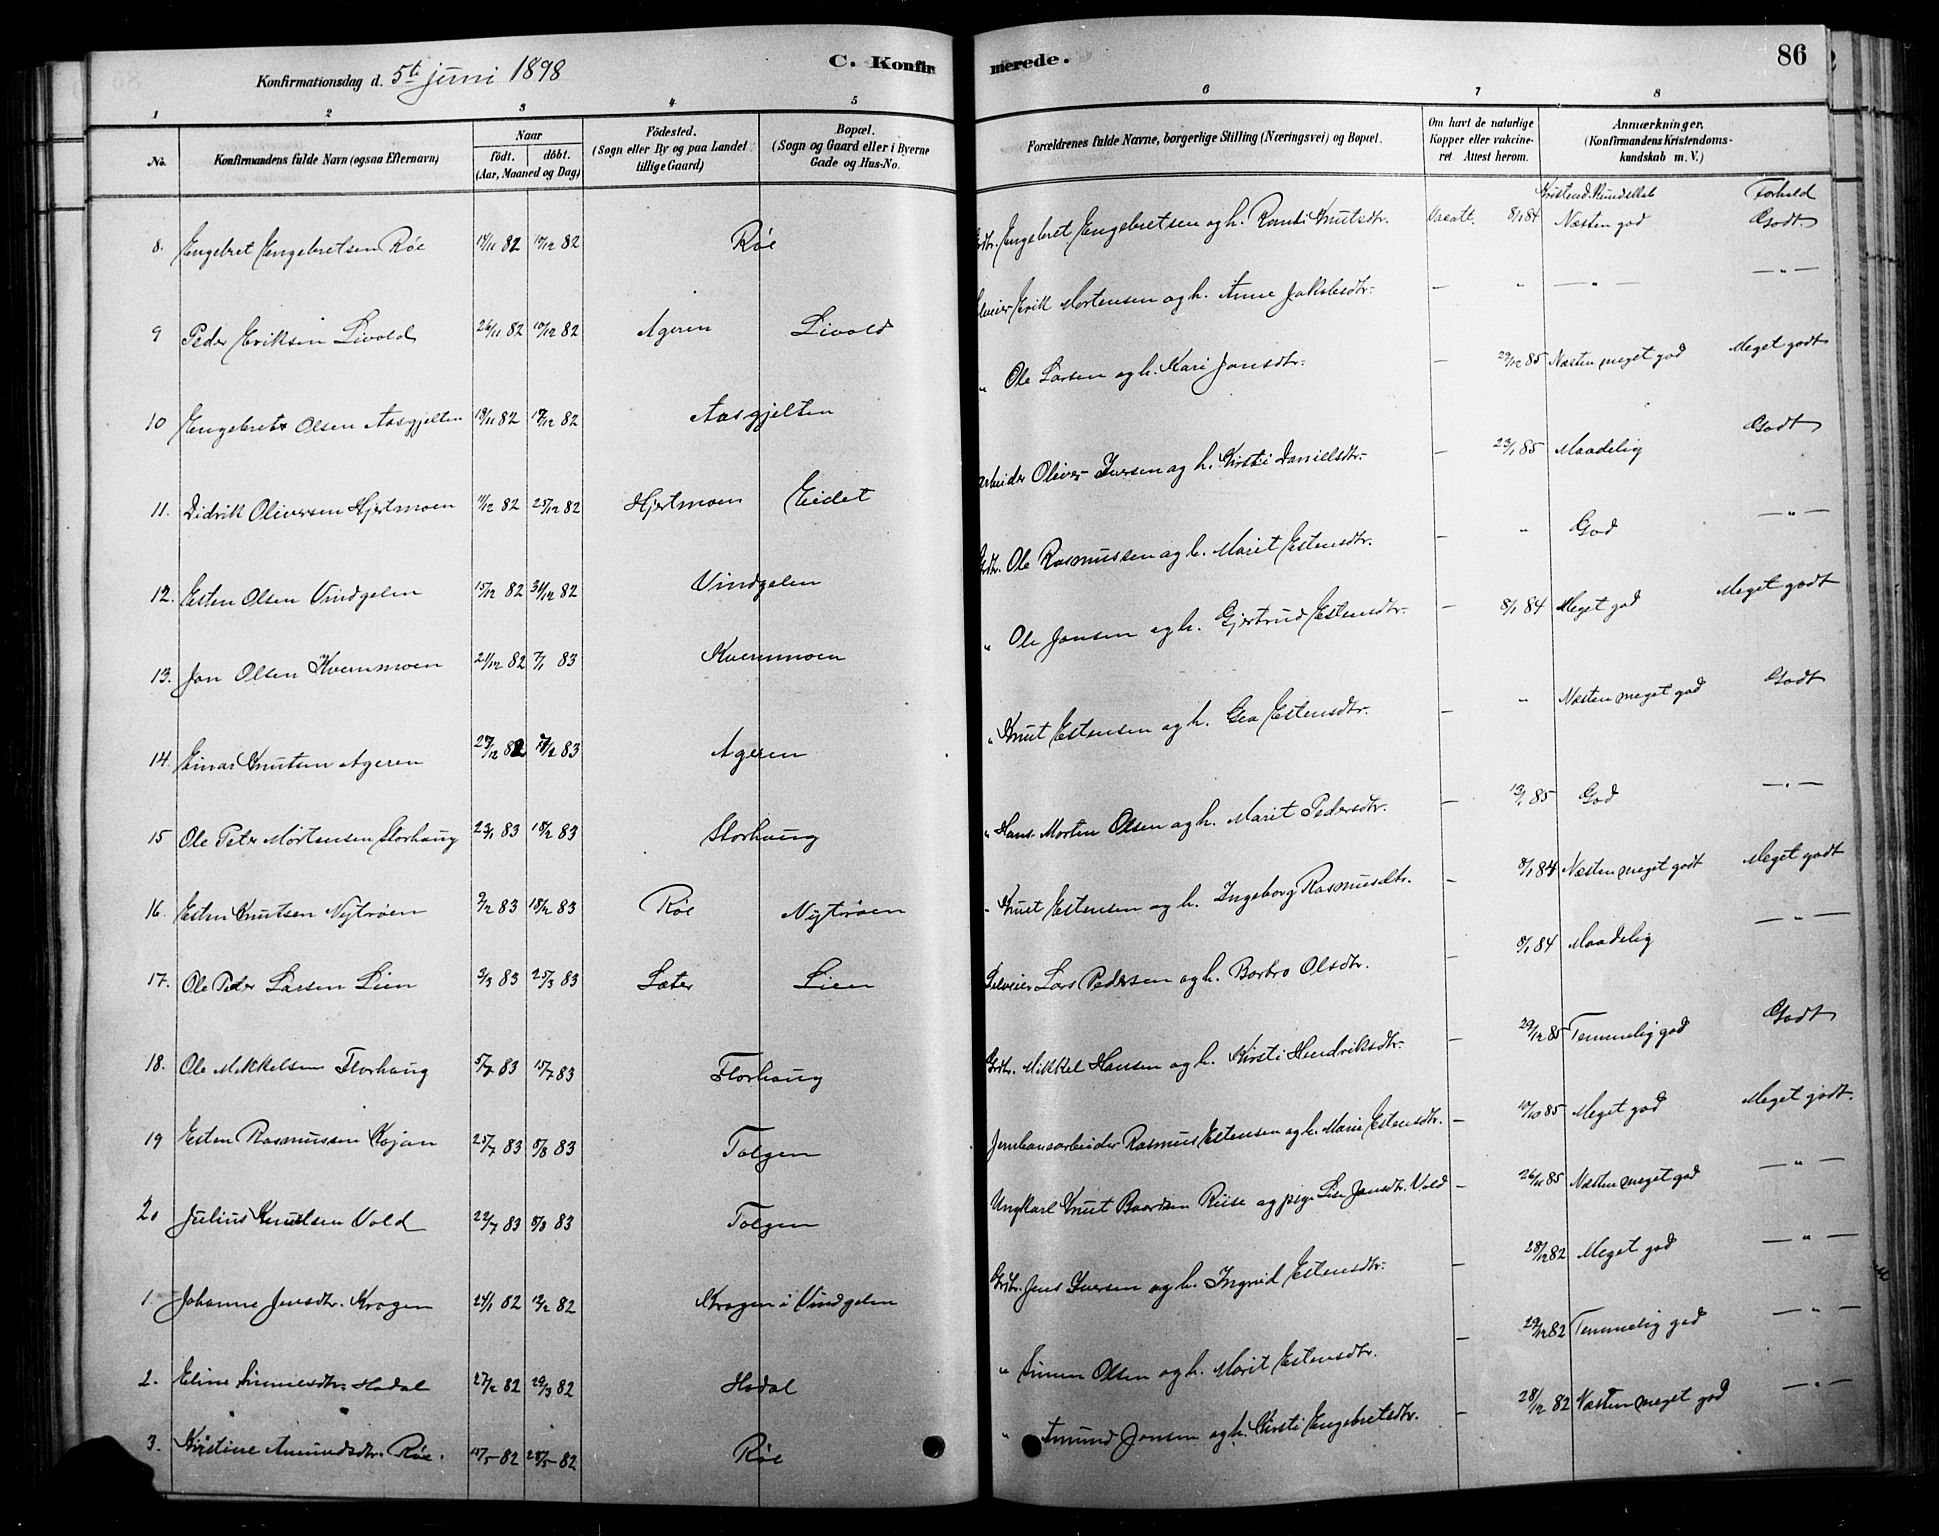 Konfirmationsdag d. 5te juni 1898
C. Konfirmerede.
86
1 2 3 4 5 6 7 8
No.
Konfirmandens fulde Navn (ogsaa Efternavn)
Naar
født. døbt.
(Aar, Maaned og Dag)
Fødested.
(Sogn eller By og paa Landet
tillige Gaard)
Bopæl.
(Sogn og Gaard eller i Byerne
Gade og Hus-No.
Forældrenes fulde Navne, borgerlige Stilling (Næringsvei) og Bopæl.
Om havt de naturlige
Kopper eller vakcine-
ret. Attest herom.
Anmærkninger,
(Konfirmandens Kristendoms-
kundskab m. V.)
Kristend. Kundskab Forhold
8. Engebret Engebretsen Røe 82 82 Røe Engebret Engebretsen og h. Randi Knutsdtr. Vacatt. 8/1 84 Næsten god Godt.
9 Peder Eriksen Livold 26/11 82 10/12 82 Ageren Livold Erik Mortensen og h. Anne Jakobsdtr. — " — " — — " —
10 Engebret Olsen Aasgjelten 82 82 Aasgjelten " Ole Larsen og h. Kari Jonsdtr. — 29/12 85 Næsten meget god Meget godt
11. Didrik Oliversen Hjertmoen 11/12 82 25/12 82 Hjertmoen Eidet arbeider Oliver Iversen og h. Kirsti Danielsdtr. — 23/1 85 Maadelig Godt
12. Esten Olsen Vindgelen 15/12 82 31/12 82 Vindgelen Ole Rasmussen og h. Marit Estensdtr. — " God — " —
13. Jon Olsen Kvernmoen 21/12 82 7/1 83 Kvernmoen " Ole Jonsen og h. Gjertrud Estensdtr. — 8/1 84 Meget god Meget godt
14. Einar Knutsen Ageren 82 83 Ageren " Knut Estensen og h. Gea Estensdtr. — " Næsten meget god Godt
15 Ole Peter Mortensen Storhaug 23/1 83 18/2 83 Storhaug " Hans Morten Olsen og h. Marit Pedersdtr. — 85 God — " —
16. Esten Knutsen Nytrøen 83 18/2 83 Røe Nytrøen " Knut Estensen og h. Ingeborg Rasmusdtr. — 8/1 84 Næsten meget godt Meget godt
17. Ole Peder Larsen Lien 3/3 83 25/3 83 Sæter Lien Selveier Lars Pedersen og h. Barbro Olsdtr. — 8/1 84 Maadelig — " —
18. Ole Mikkelsen Florhaug 83 15/7 83 Florhaug Grdbr. Mikkel Hansen og h. Kirsti Hendriksdtr. — 29/12 85 Temmelig god Godt
19 Esten Rasmussen Kojan 25/7 83 83 Tolgen Jernbanearbeider Rasmus Estensen og h. Marie Estensdtr. — 85 Meget god Meget godt.
20 Julius Knutsen Vold 22/7 83 83 Tolgen Ungkarl Knut Baardsen Riise og pige Lise Jonsdtr. Vold — 26/11 85 Næsten meget god — " —
1. Johanne Jensdtr. Krogen 24/1 82 12/2 82 Krogen i Vindgelen Grdbr. Jens Iversen og h. Ingrid Estensdtr. — 28/12 82 Meget god — " —
2. Eline Simensdtr. Hodal 27/2 82 29/3 82 Hodal " Simen Olsen og h. Marit Estensdtr. — 29/12 82 Temmelig god — " —
3. Kirstine Amundsdtr. Røe. 82 28/5 82 Røe " Amund Jonsen og h. Kirsti Engebretsdtr. — 28/12 82 Næsten meget god — " —